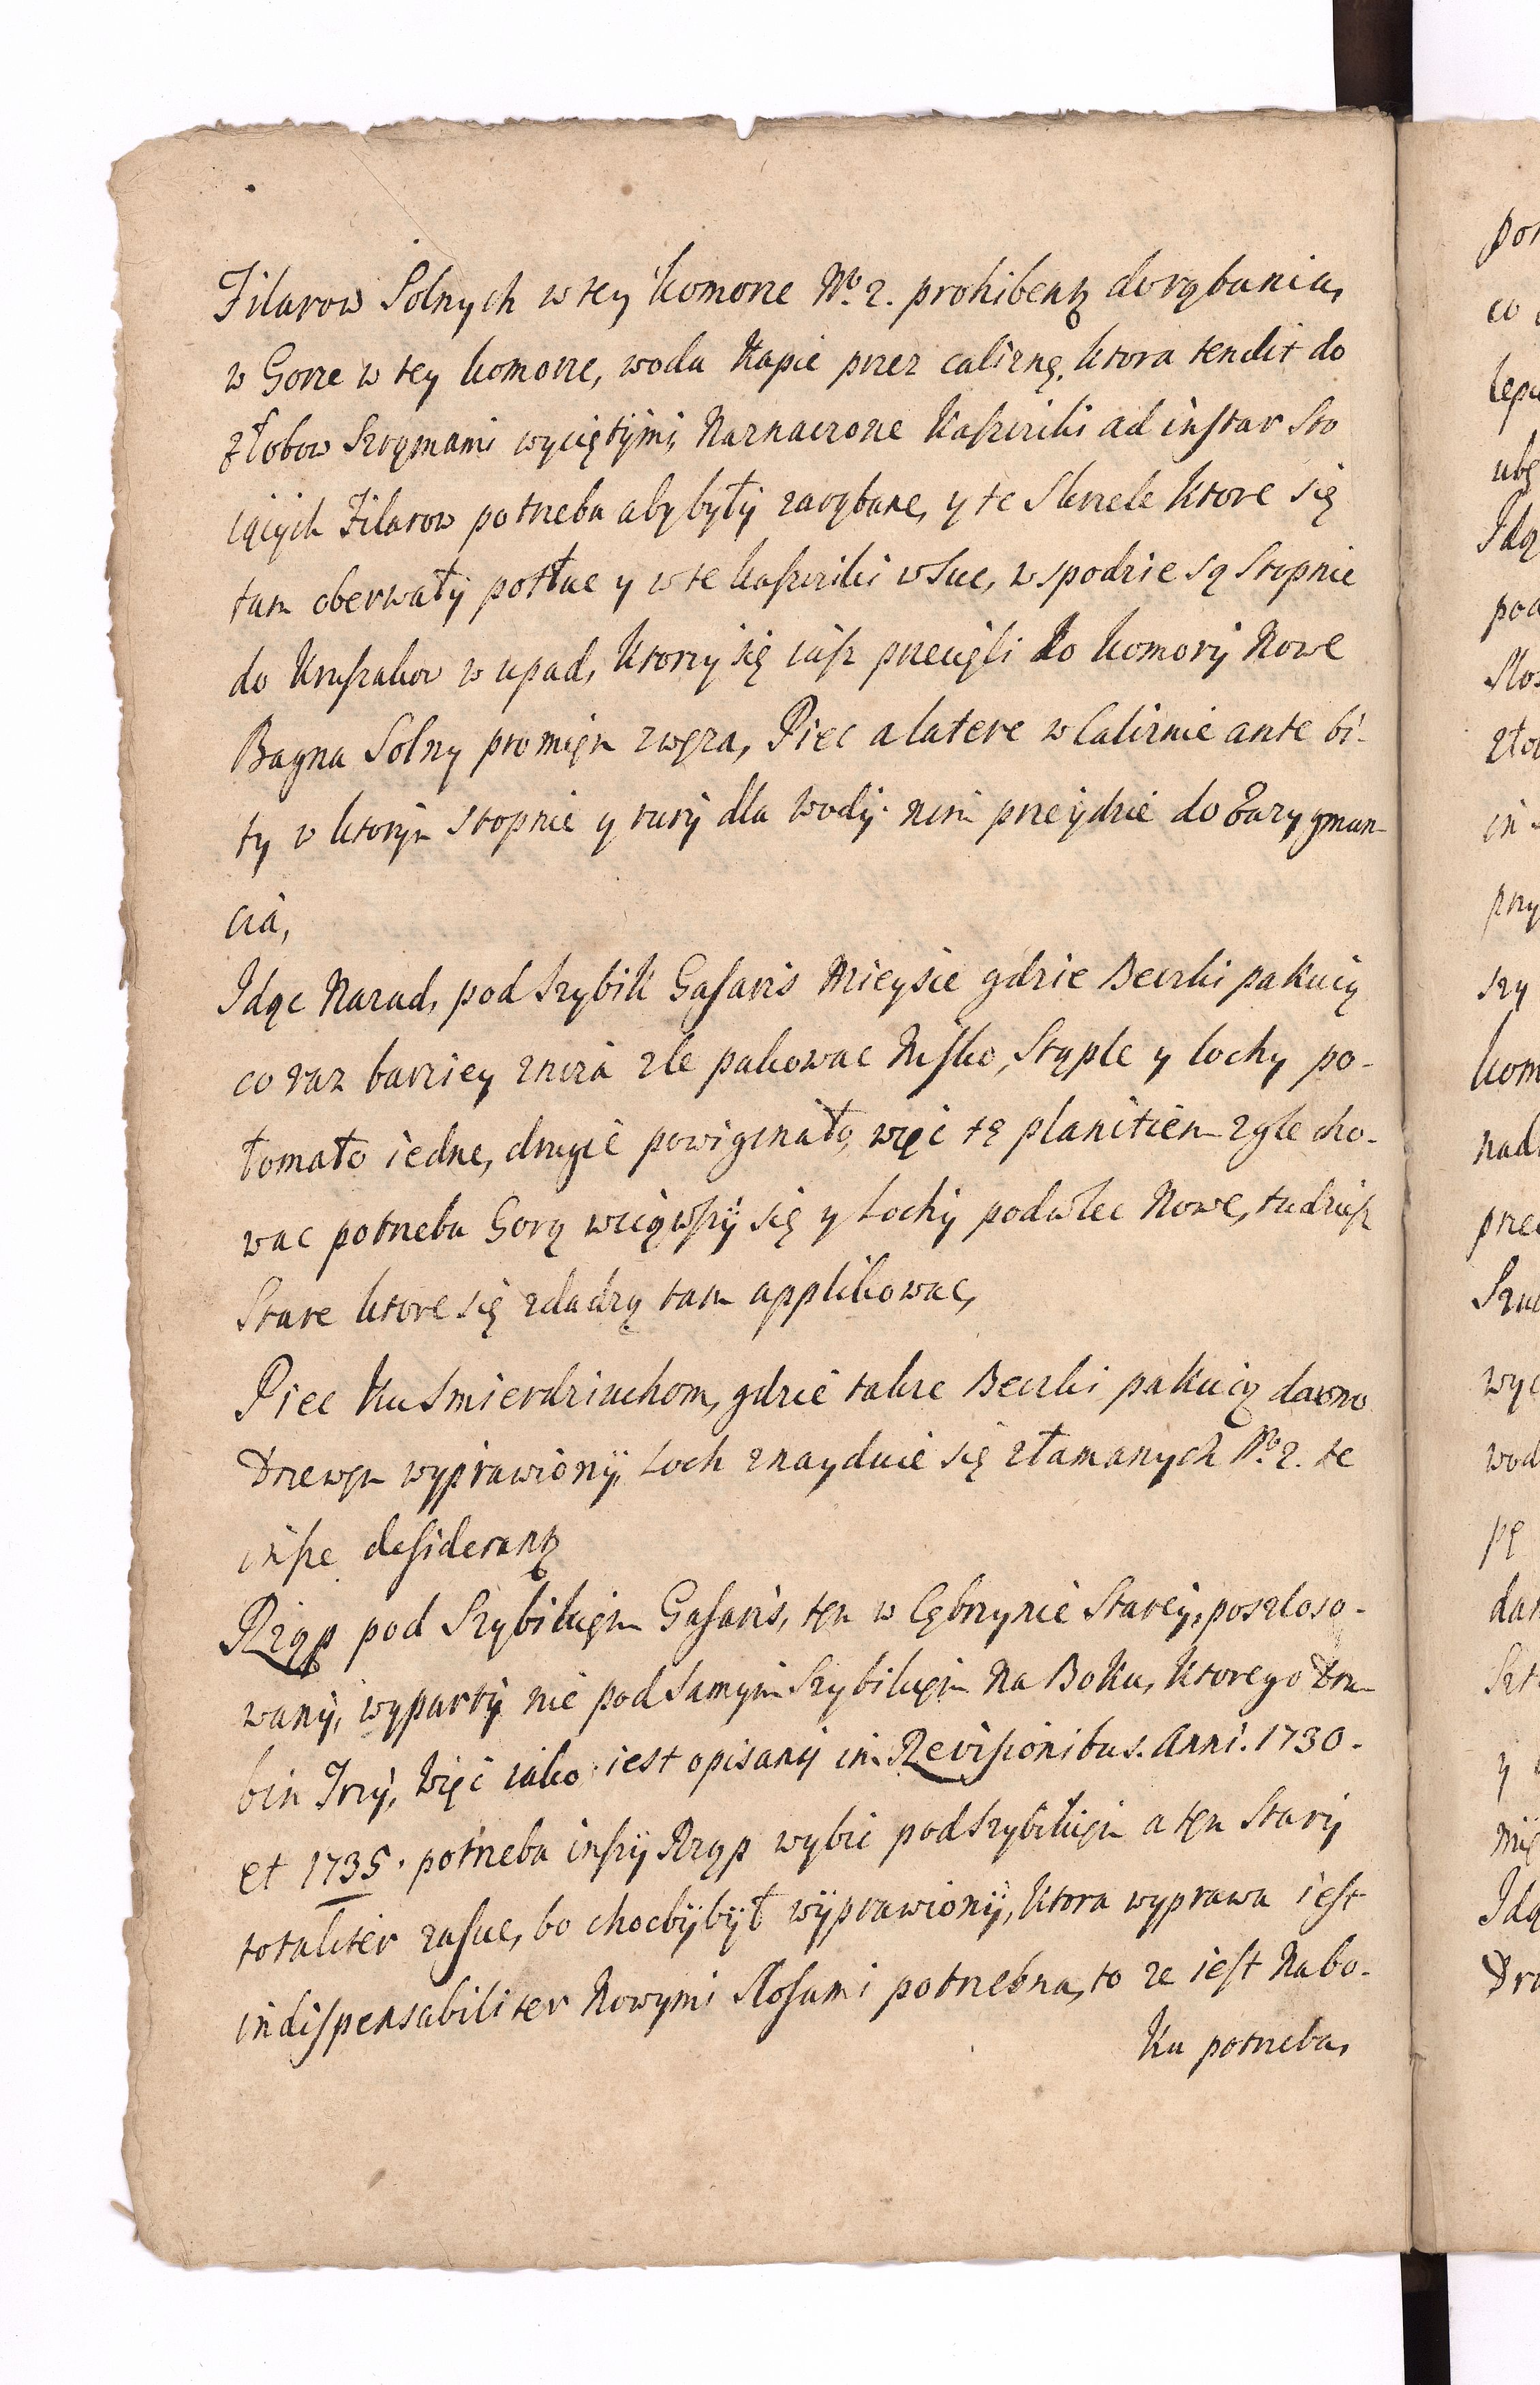 Filarow Solnych w tey komorze No. 2. prohibentz dorąbania,
w Gorze w tey komorze, woda kapie przez caliznę, ktora tendit do
złobow Szrąmami wyciętymi, Naznaczone Kaszciki ad instar Sto
iących Filarow potrzeba aby były zarąbane, y te Skrzele ktore się
tam oberwały potłuc y w te kaszciki wsuc, w spodzie są Stopnie
do Kruszakow w upad, ktorzy się iusz przecięli do komory Nowe
Bagna Solny promięn zwęza, Piec a latere w Caliznie ante bi-
ty w ktorym Stopnie y rury dla wody. nim przeydzie do Zarygman-
cia,
Idąc Nazad, pod Szybik Gasaris Mieysce gdzie Beczki pakuią
co raz barziey zniza zle pakowac Nisko, Stęple y lochy po-
łomało iedne, drugie powiginało, więc tę planitiem zgle cho-
wac potrzeba Gorą wciąwszy się y Lochy podwlec Nowe, tudziesz
Stare ktore się zdadzą tam applikowac,
Piec Ku Smierdziuchom, gdzie takze Beczki pakuią dawno
Drzewęm wyprawiony, Loch znayduie się złamanych No. 2. te
insze desiderantz
Rząp pod Szybikięm Gasaris, tęn w Cębrzynie Starey, poszloso-
wany, wyparty nie pod Samym Szybikięm Na Boku, ktorego Dra-
bin Trzy, więc iako iest opisany in Revisionibus. Anni. 1730.
et 1735. potrzeba inszy Rząp wybic pod Szybikięm a tęn Stary
totaliter zasuc, bo chocby był wyprawiony, ktora wyprawa iest
indispensabiliter Nowymi Slosami potrzebna, to ze iest Na bo-
Ku potrzeba,